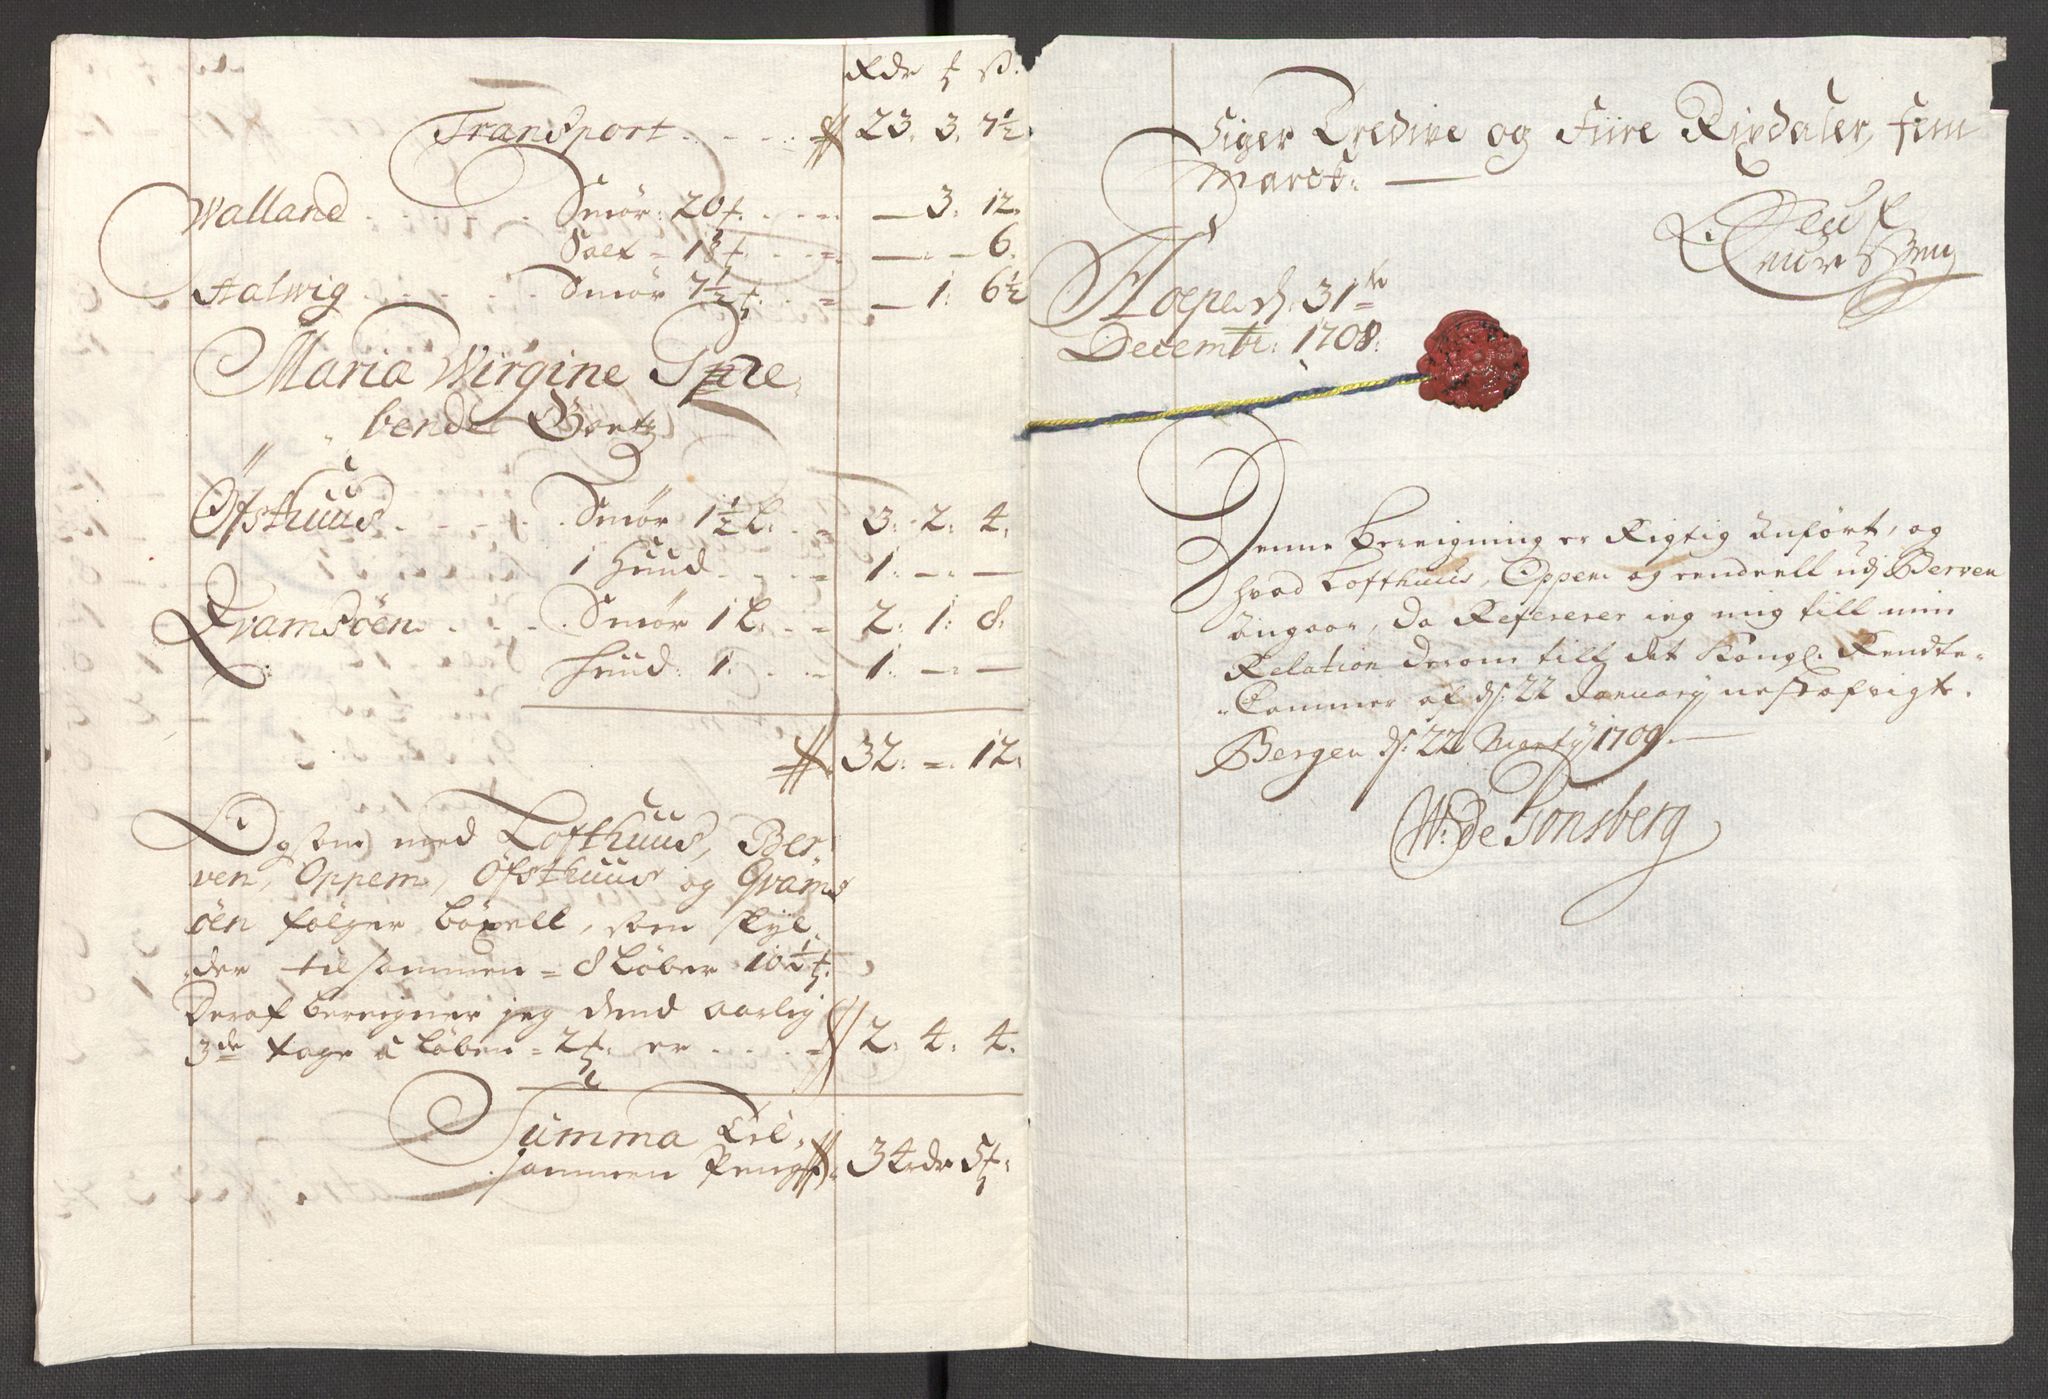 Rdr ß
Transport 23. 3. 7½
Walland Smør: 20 — 3. 12.
Salt = 1 — — 6.
Halwig Smør 7½ — 1. 6½
Maria Wirgine Præ-
bende Goetz
Øfsthuus Smør 1½ L. 3. 2. 4.
1 Huud 1. — —
Qvamsöen Smør 1 L: 2. 1. 8.
Huud: 1. 1. — —
32. = 12.
Ogsom med Lofthuus, Ber-
ven, Oppem, Øfsthuus og Qvams
öen følger böxell, som skyl-
der tilsammen = 8 Løber 10½
Deraf beregner jeg dend aarlig
3de tage a Løben = 2 er 2. 4. 4.
Summa Til-
sammen Penge 34 rdr 5
Siger Tredive og Fiire Rixdaler, fem
Marck: —
Hope d. 31te
Decembr: 1708.
Denne Beregning er Rigtig anført, og
hvad Lofthuus, Oppem og eendeell udj Berven
angaar, da Refererer jeg mig till min
Relation derom till det Kongl. Rendte-
Cammer af ds: 22 January nestafvigte.
Bergen ds: 22 Martij 1709. —
W: de Tonsberg